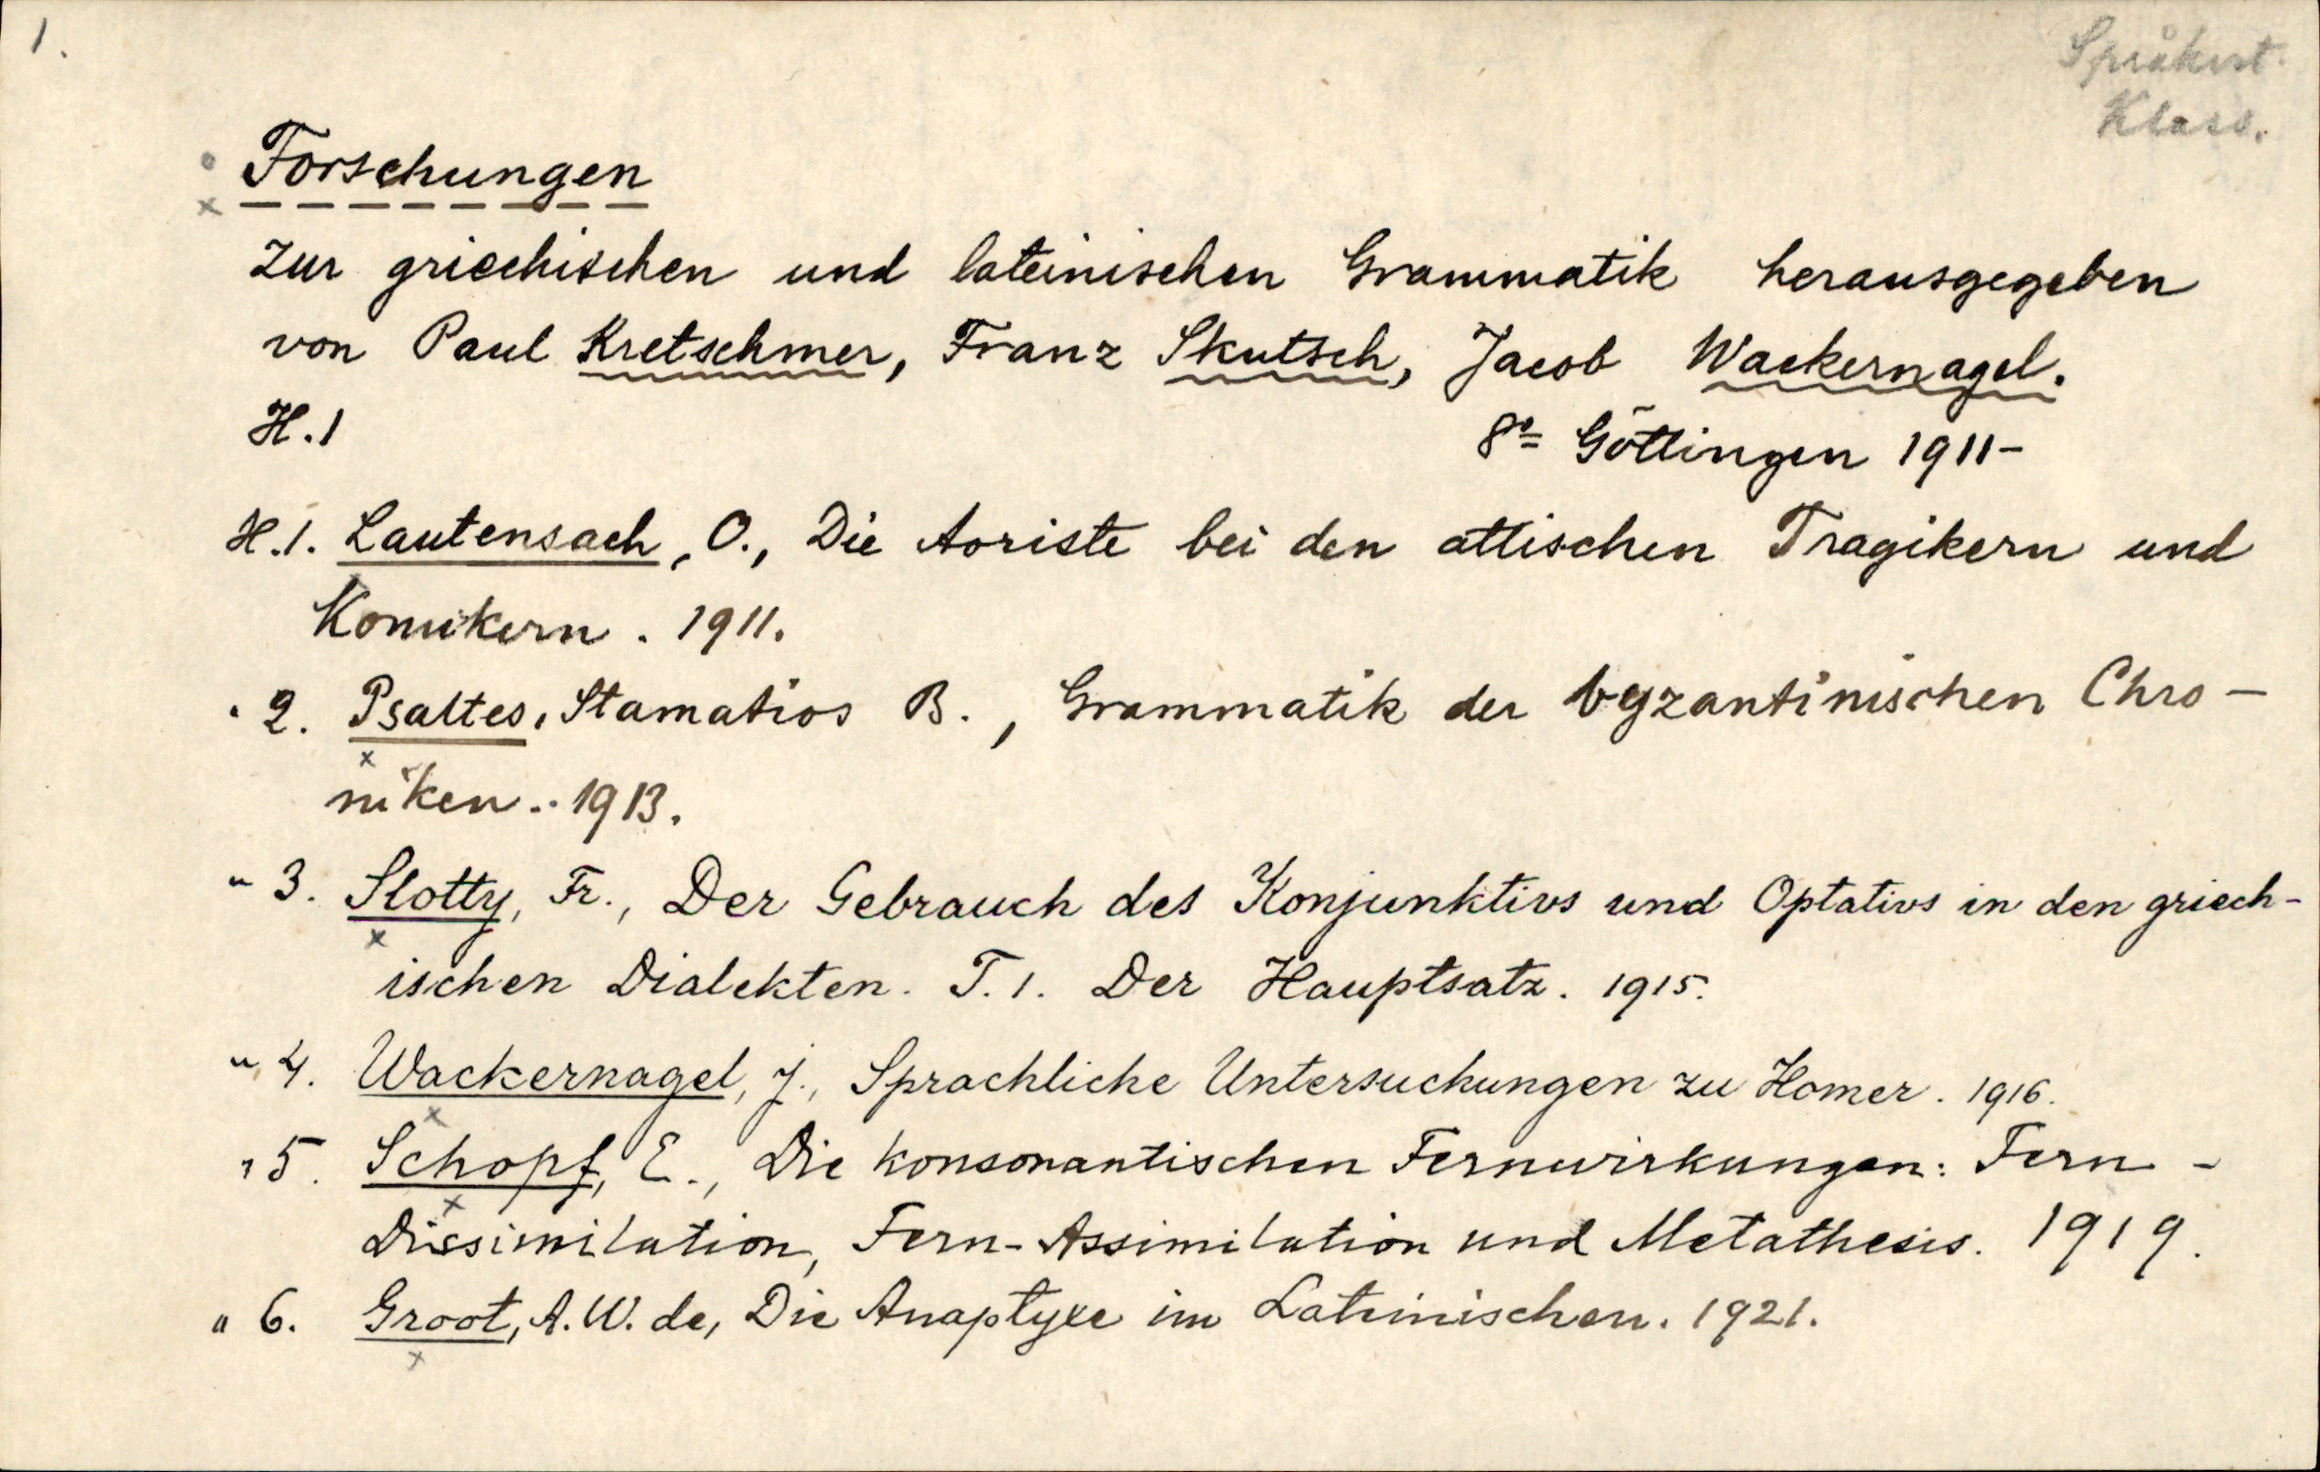 1.
Språkvt.
Klass.
Forschungen
zur griechischen und lateinischen Grammatik herausgegeben
von Paul Kretschmer, Franz Skutsch, Jacob Wackernagel.
H.1
8º Göttingen 1911-
H.1. Lautensach, O., Die Aoriste bei den attischen Tragikern und
Komikern. 1911.
" 2. Psaltes, Stamatios B., Grammatik der byzantinischen Chro-
niken.. 1913.
" 3. Slotty, Fr., Der Gebrauch des Konjunktivs und Optativs in den griech-
ischen Dialekten. T.1. Der Hauptsatz. 1915.
" 4. Wackernagel, J., Sprachliche Untersuchungen zu Homer. 1916.
" 5. Schopf, E., Die konsonantischen Fernwirkungen: Fern-
Dissimilation, Fern-Assimilation und Metathesis. 1919.
" 6. Groot, A.W. de, Die Anaptyxe im Lateinischen. 1921.